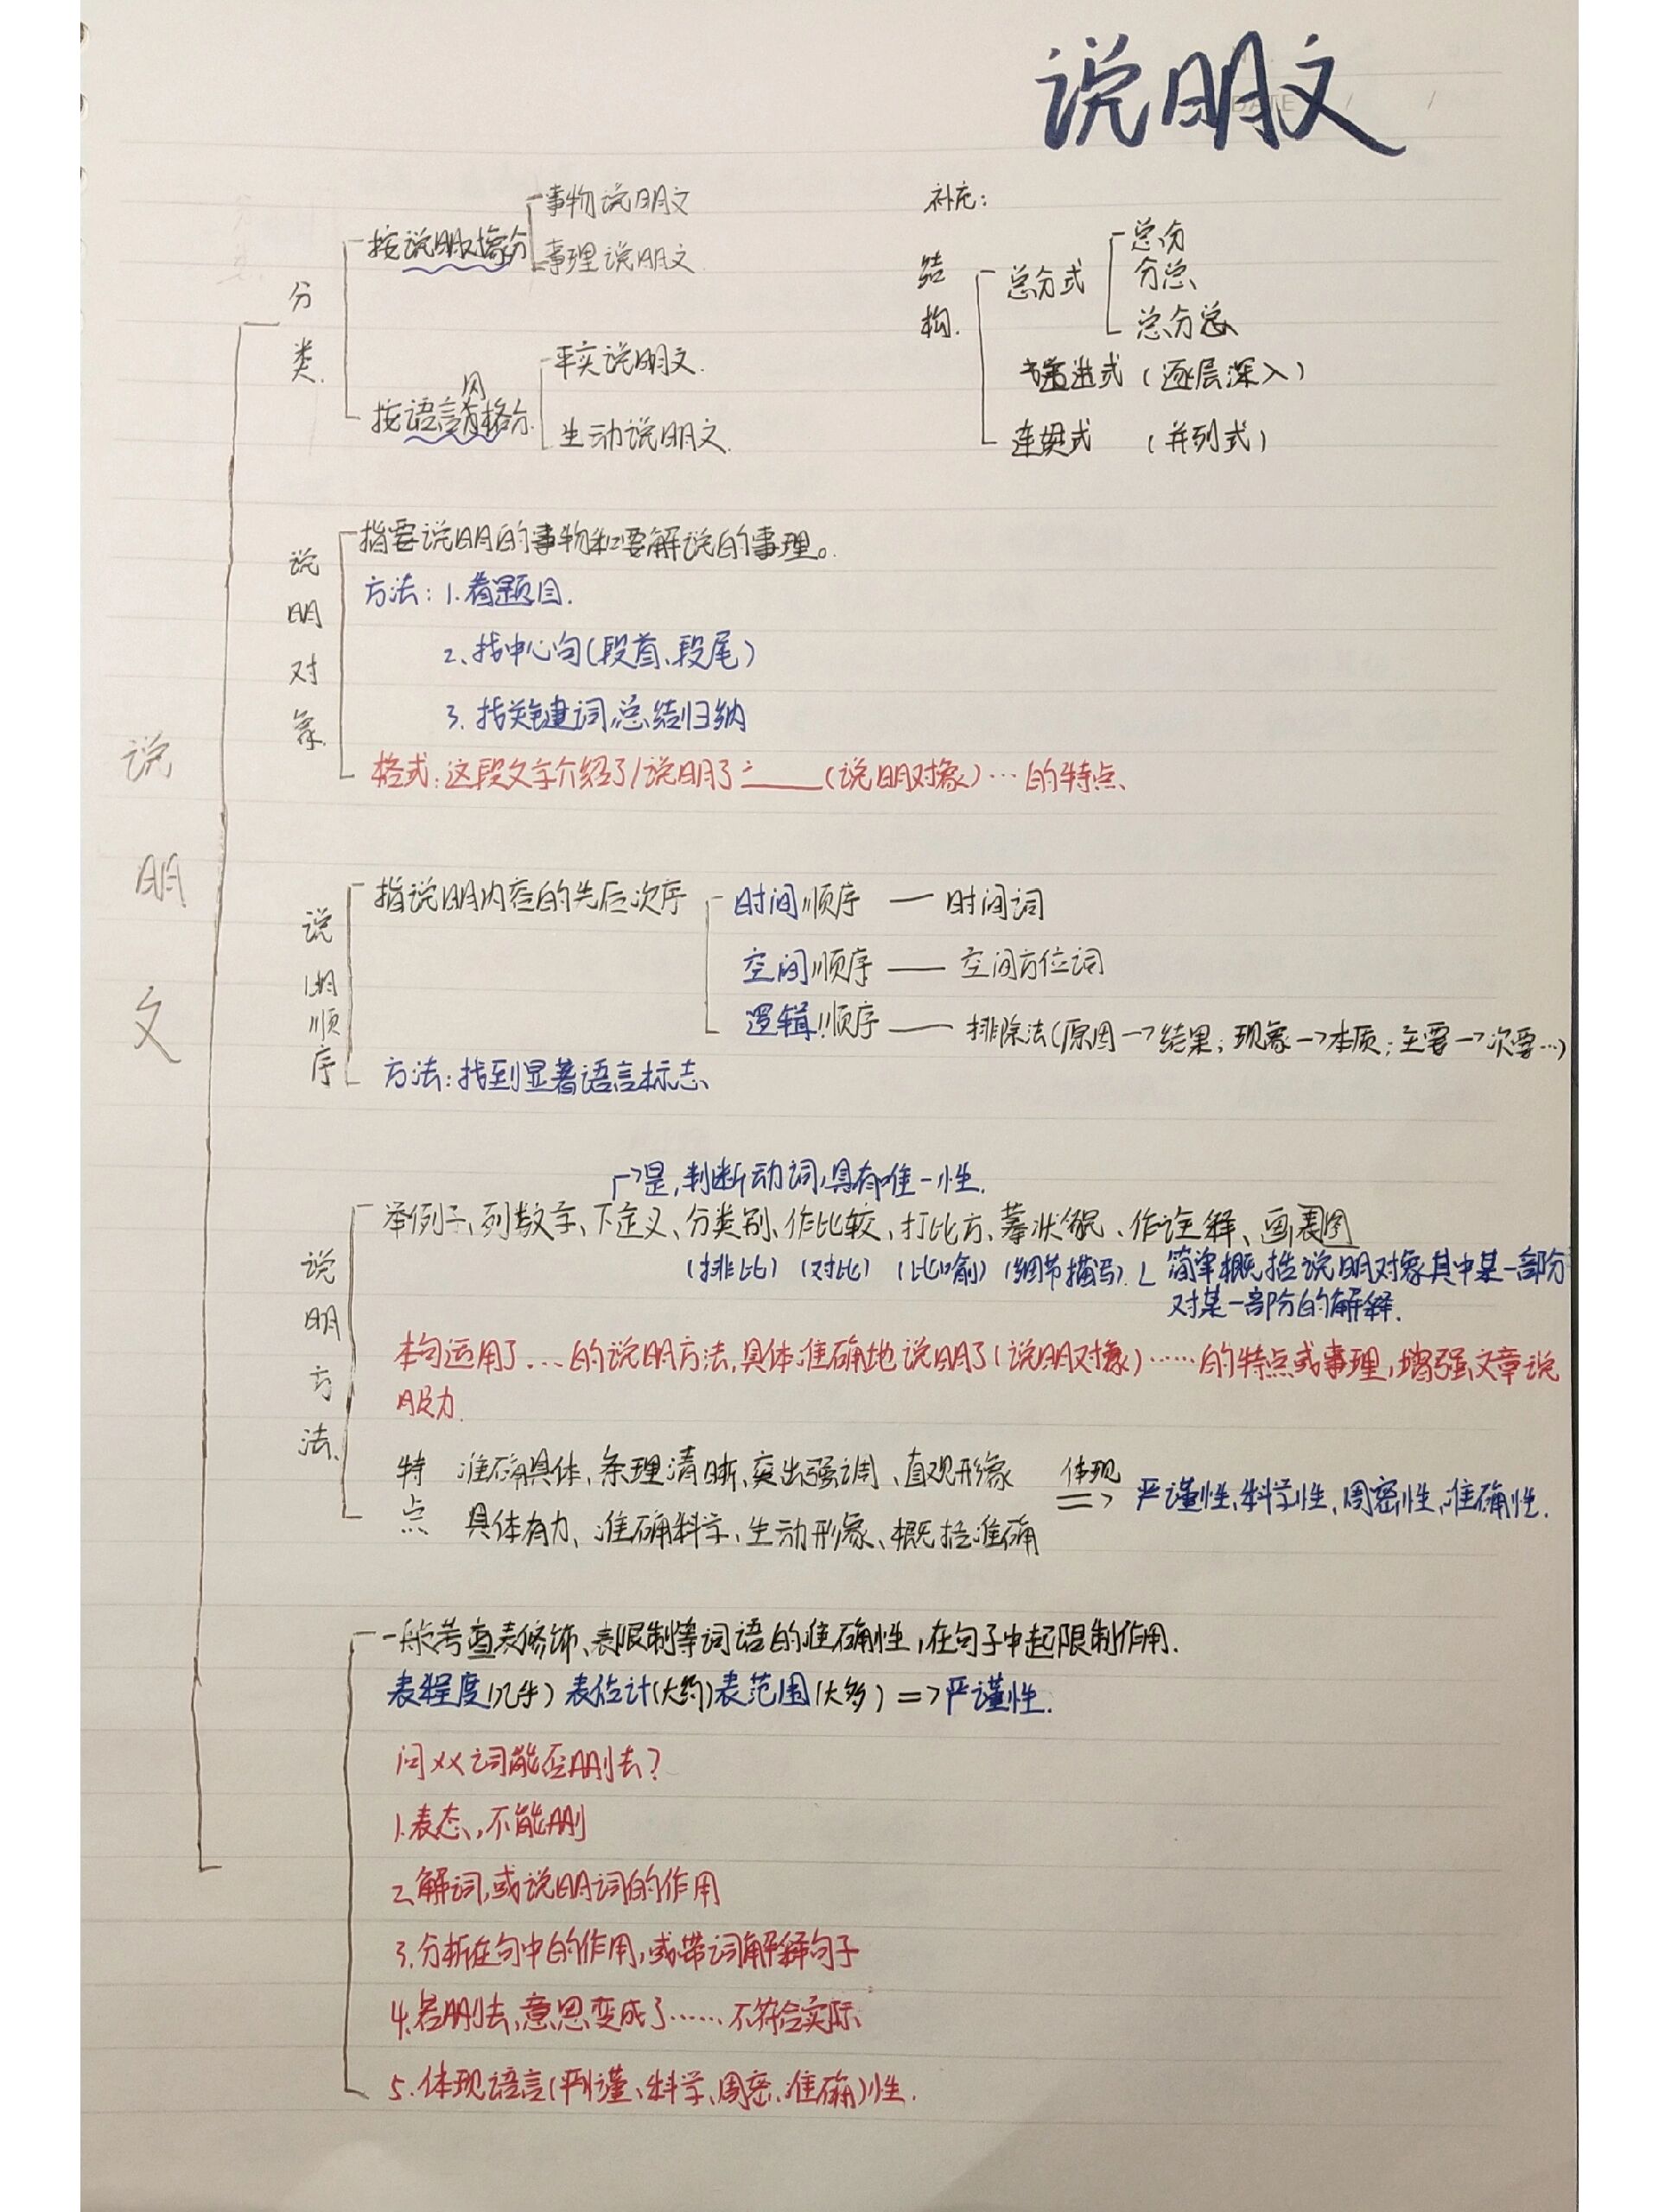 说明文
DATE / /
说明文
分类.
按说明对象分
事物说明文
事理说明文
按语言风格分.
平实说明文.
生动说明文.
补充:
结构.
总分式
总分
分总
总分总
递进式 (逐层深入)
连贯式 (并列式)
说明对象.
指要说明的事物和要解说的事理。
方法: 1.看题目.
2、找中心句(段首、段尾)
3. 找关键词,总结归纳
格式:这段文字介绍了/说明了:____(说明对象)…的特点、
说明顺序
指说明内容的先后次序
时间顺序 — 时间词
空间顺序 — 空间方位词
逻辑顺序 — 排除法(原因→结果;现象→本质;主要→次要…)
方法:找到显著语言标志、
说明方法.
是,判断动词,具有唯一性.
举例子、列数字、下定义、分类别、作比较、打比方、摹状貌、作诠释、画图表
(排比) (对比) (比喻) (细节描写). 简单概括说明对象其中某一部分
对某一部分的解释.
本句运用了…的说明方法,具体准确地说明了(说明对象)……的特点或事理,增强文章说
服力.
特点 准确具体、条理清晰、突出强调、直观形象 体现 => 严谨性、科学性、周密性、准确性.
具体有力、准确科学、生动形象、概括准确
一般考查表修饰、表限制等词语的准确性,在句子中起限制作用.
表程度(几乎) 表估计(大约)表范围(大多) => 严谨性.
问××词能否删去?
1.表态,不能删
2、解词,或说明词的作用
3.分析在句中的作用,或带词解释句子
4.若删去,意思变成了……不符合实际、
5.体现语言(严谨、科学、周密、准确)性.